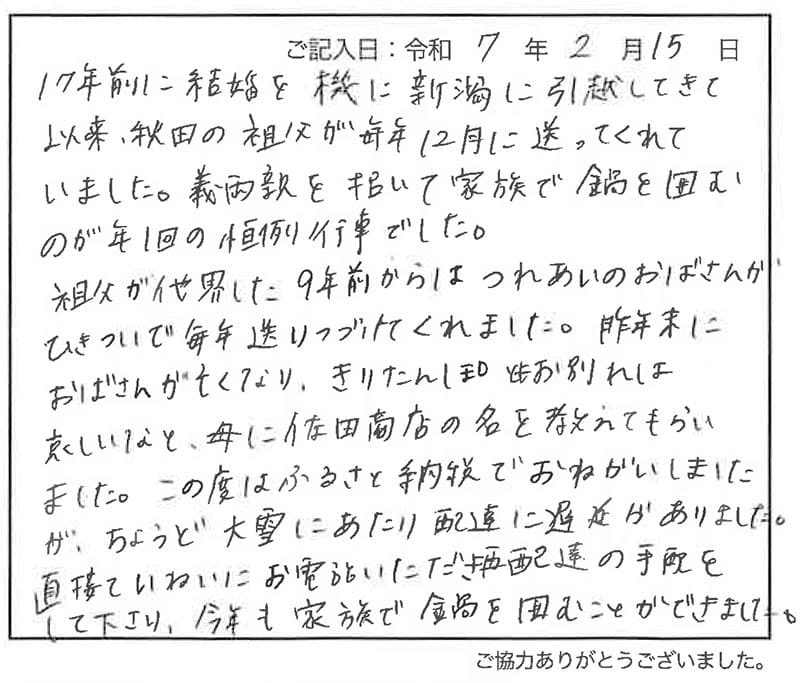 ご記入日：令和 7 年 2 月 15 日
17年前に結婚を機に新潟に引越してきて
以来、秋田の祖父が毎年12月に送ってくれて
いました。義両親を招いて家族で鍋を囲む
のが年1回の恒例行事でした。
祖父が他界した9年前からはつれあいのおばさんが
ひきついで毎年送りつづけてくれました。昨年末に
おばさんが亡くなり、きりたんぽとお別れは
哀しいなと、母に佐田商店の名を教えてもらい
ました。この度はふるさと納税でおねがいしました
が、ちょうど大雪にあたり配達に遅延がありました。
直接ていねいにお電話いただき再配達の手配を
して下さり、今年も家族で鍋を囲むことができました。
ご協力ありがとうございました。